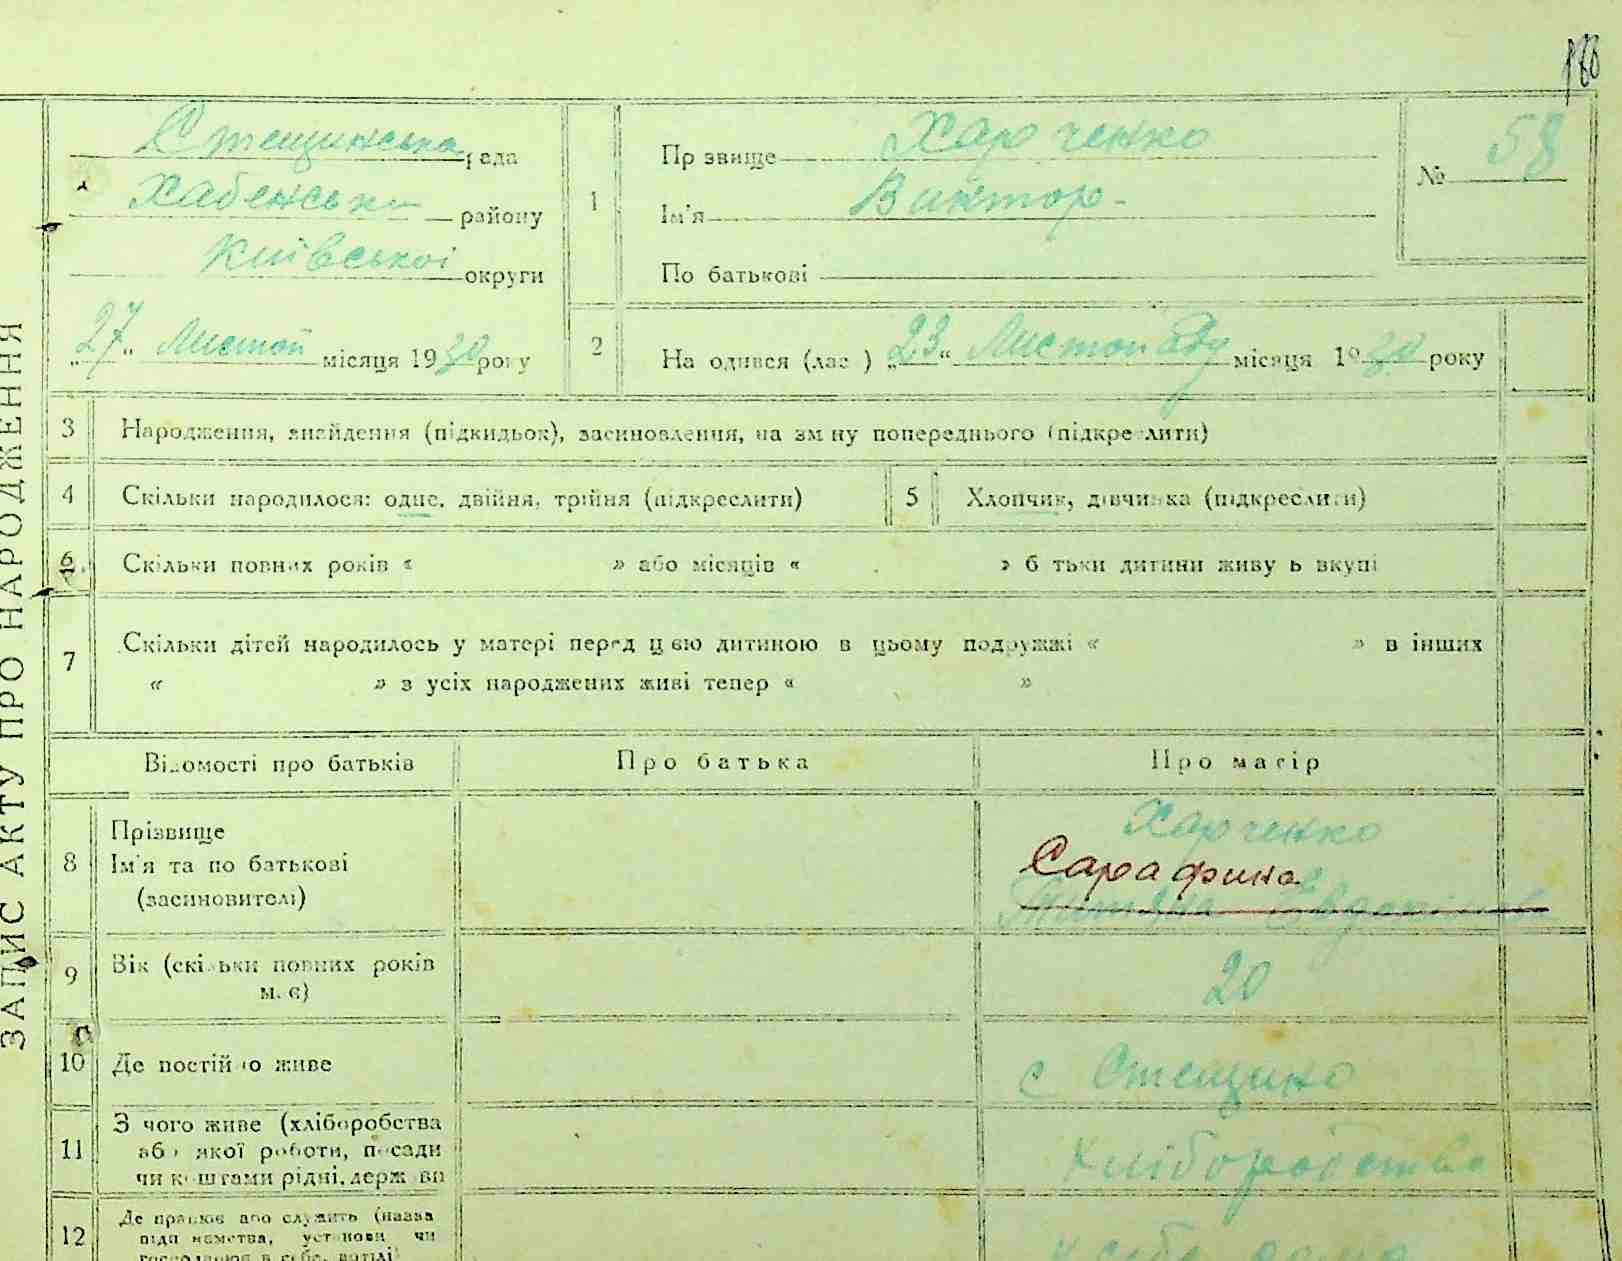 160
Стещинська рада
Хабенськ району
Київської округи
„27“ Листоп місяця 1930 року
1
Прзвище Харченко
Ім'я Виктор
По батькові
№ 58
2
На одився (лас ) „23“ Листопаду місяця 1930 року
3 Народження, знайдення (підкидьок), засиновлення, на зм ну попереднього (підкре лити)
4 Скільки народилося: одне, двійня, трійня (підкреслити)
5 Хлопчик, дівчинка (підкреслити)
6 Скільки повних років « » або місяців « » б тьки дитини живу ь вкупі
7 Скільки дітей народилось у матері перед цією дитиною в цьому подружжі « » в інших
« » з усіх народжених живі тепер « »
Відомості про батьків
Про батька
Про матір
8 Прізвище
Ім'я та по батькові
(засиновителі)
Харченко
Сарафина
Татяна
9 Вік (скільки повних років
м. є)
20
10 Де постійно живе
с Стещино
11 З чого живе (хліборобства
або якої роботи, посади
чи коштами рідні, держ ви
Хліборобство
12 Де працює або служить (назва
підп ємства, установи чи
ЗАПИС АКТУ ПРО НАРОДЖЕННЯ